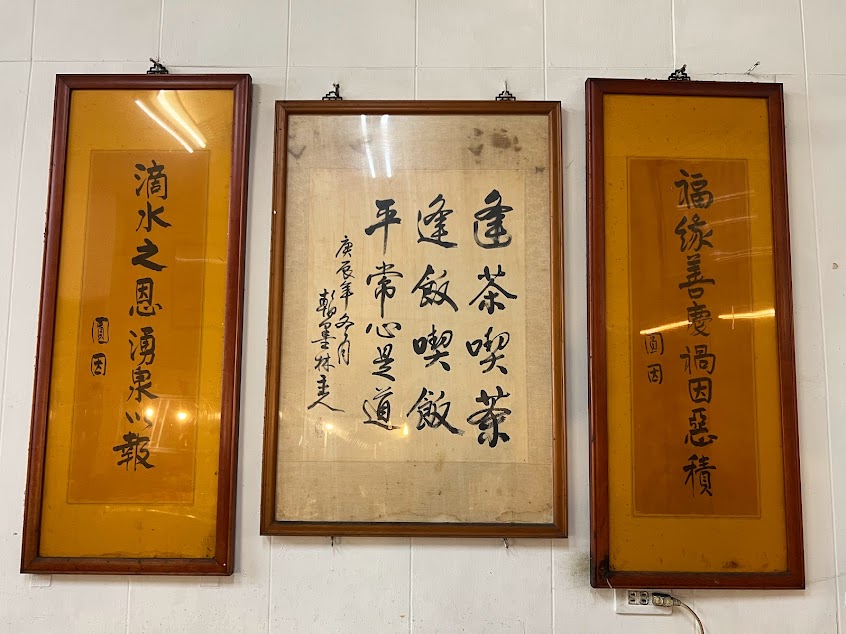 福緣善慶禍因惡積
圓因
逢茶喫茶
逢飯喫飯
平常心是道
庚辰年冬月
翰墨林主人
滴水之恩湧泉以報
圓因